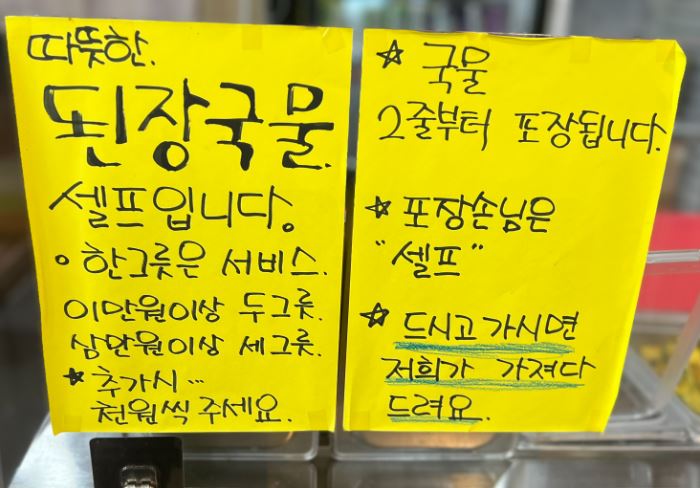 따뜻한.
된장국물.
셀프입니다.
○ 한그릇은 서비스.
이만원이상 두그릇.
삼만원이상 세그릇.
☆ 추가시...
천원씩 주세요.
☆ 국물
2줄부터 포장됩니다.
☆ 포장손님은
"셀프"
☆ 드시고 가시면
저희가 가져다
드려요.